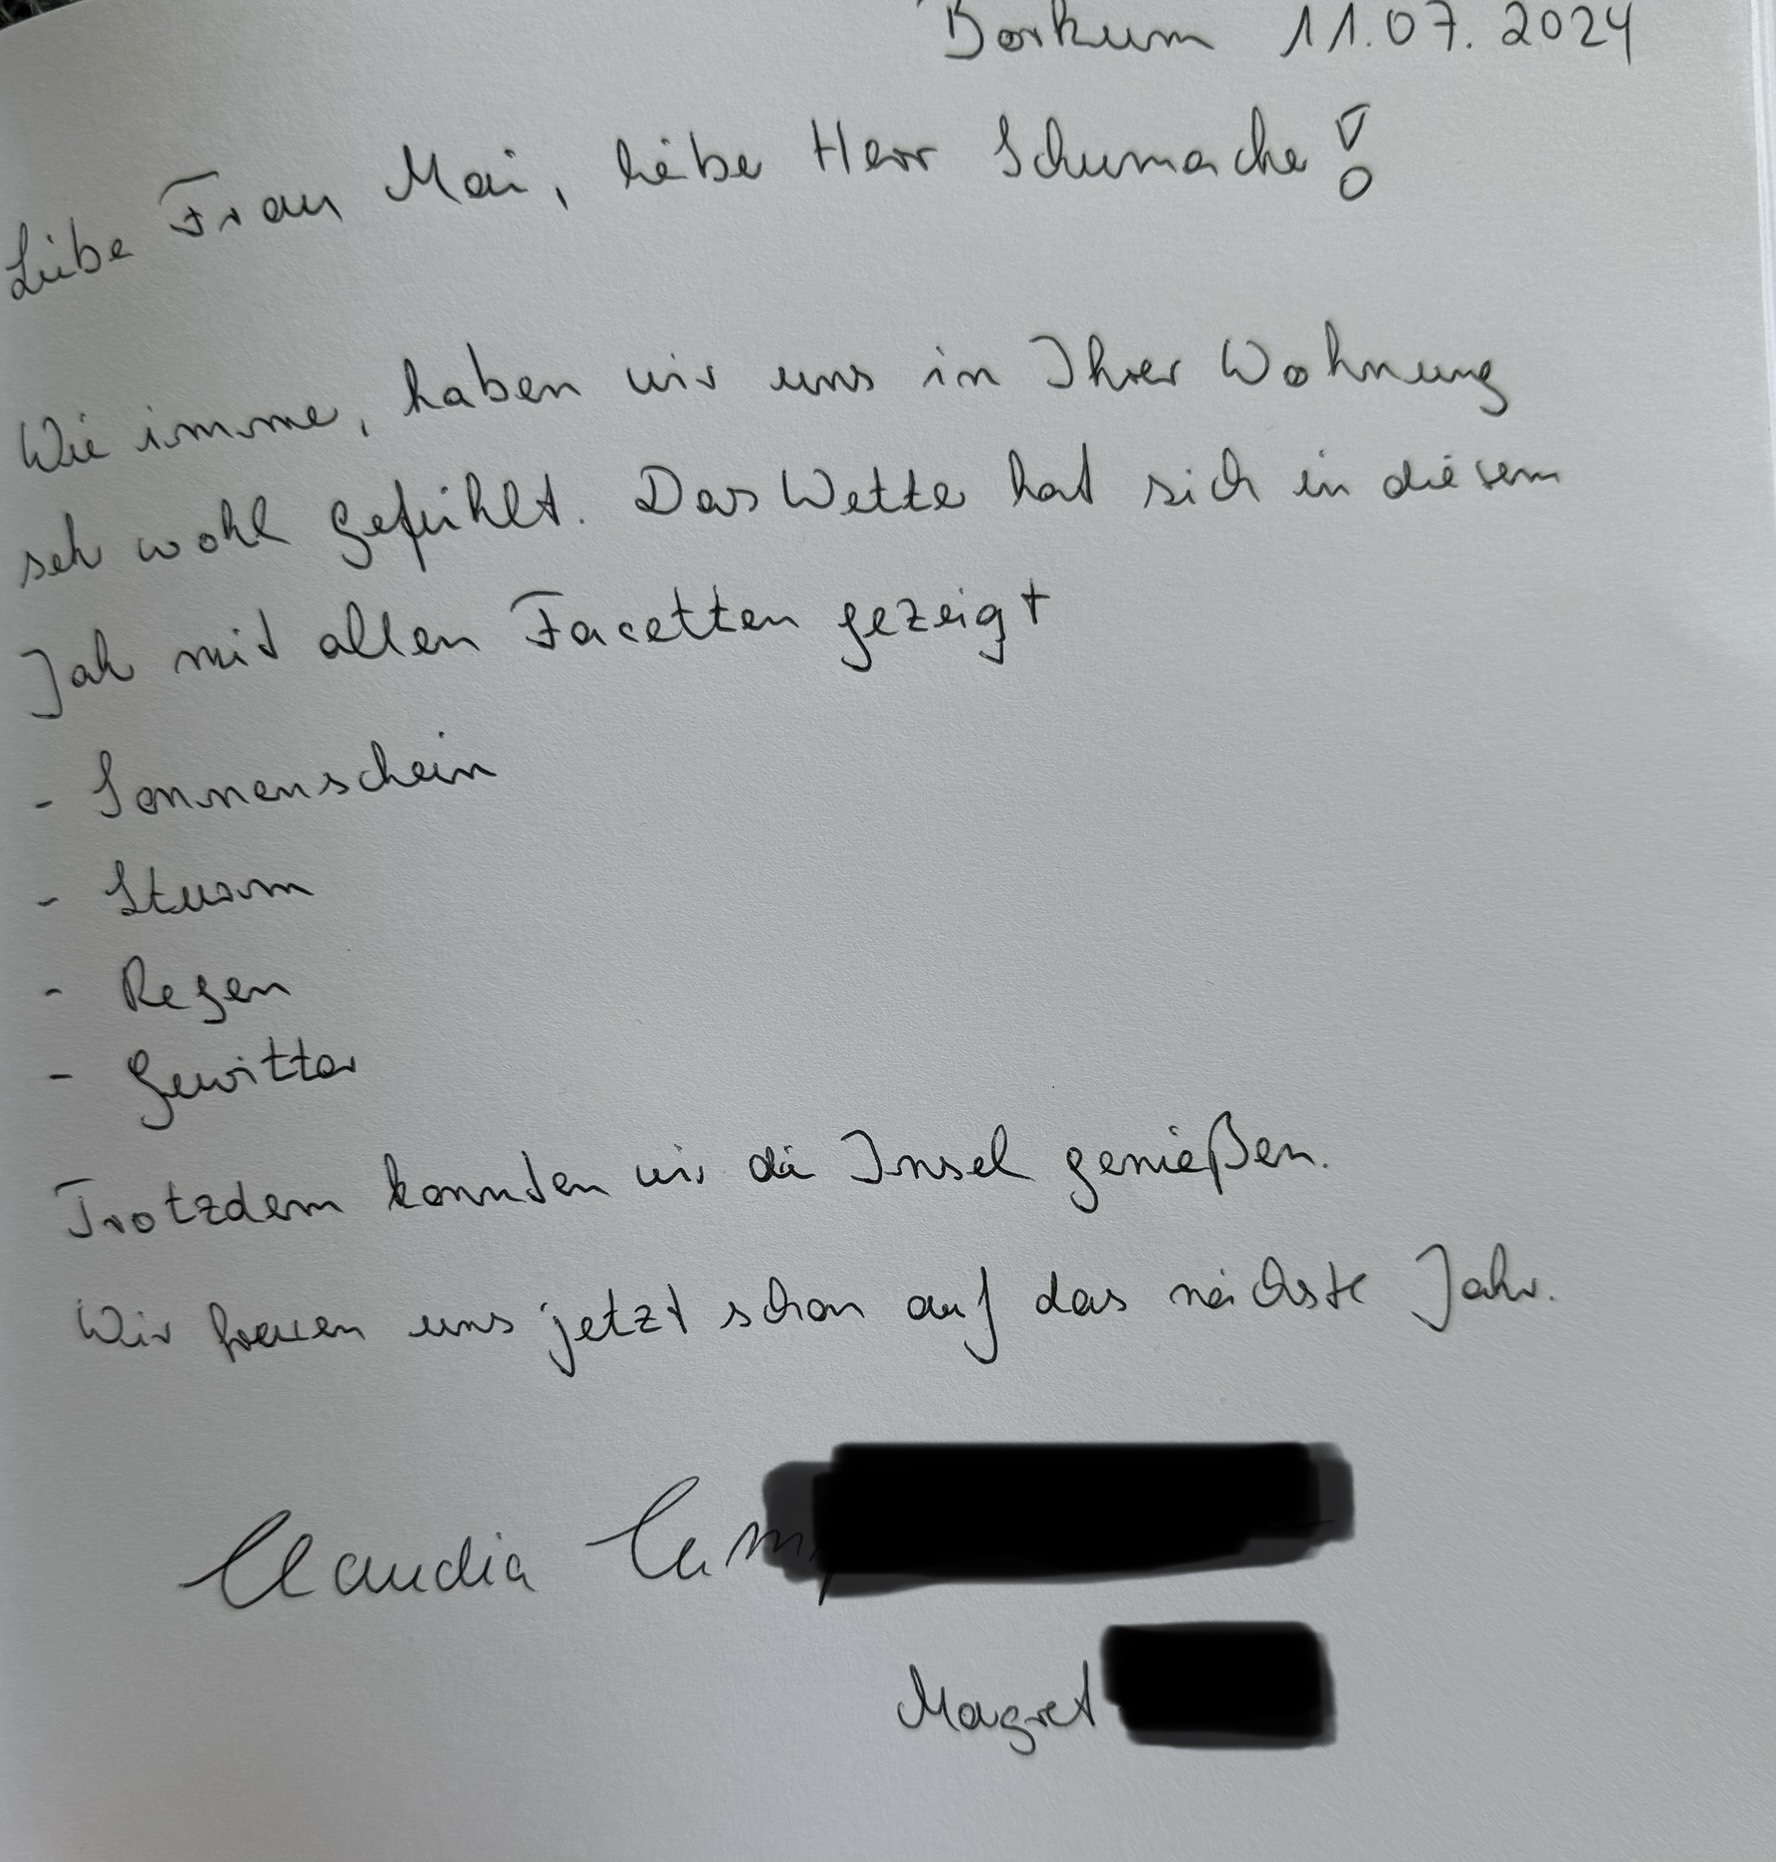 Borkum 11.07.2024
Liebe Frau Mai, liebe Herr Schumacher!
Wie immer, haben wir uns in Ihrer Wohnung
sehr wohl gefühlt. Das Wetter hat sich in diesem
Jahr mit allen Facetten gezeigt
- Sonnenschein
- Sturm
- Regen
- Gewitter
Trotzdem konnten wir die Insel genießen.
Wir freuen uns jetzt schon auf das nächste Jahr.
Claudia
Magret